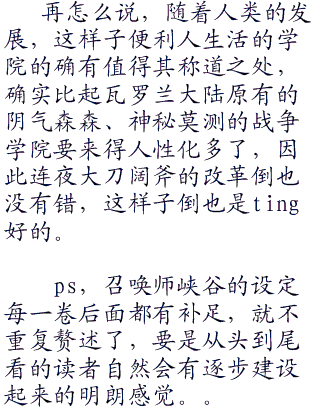 再怎么说，随着人类的发
展，这样子便利人生活的学
院的确有值得其称道之处，
确实比起瓦罗兰大陆原有的
阴气森森、神秘莫测的战争
学院要来得人性化多了，因
此连夜大刀阔斧的改革倒也
没有错，这样子倒也是ting
好的。
ps，召唤师峡谷的设定
每一卷后面都有补足，就不
重复赘述了，要是从头到尾
看的读者自然会有逐步建设
起来的明朗感觉。。